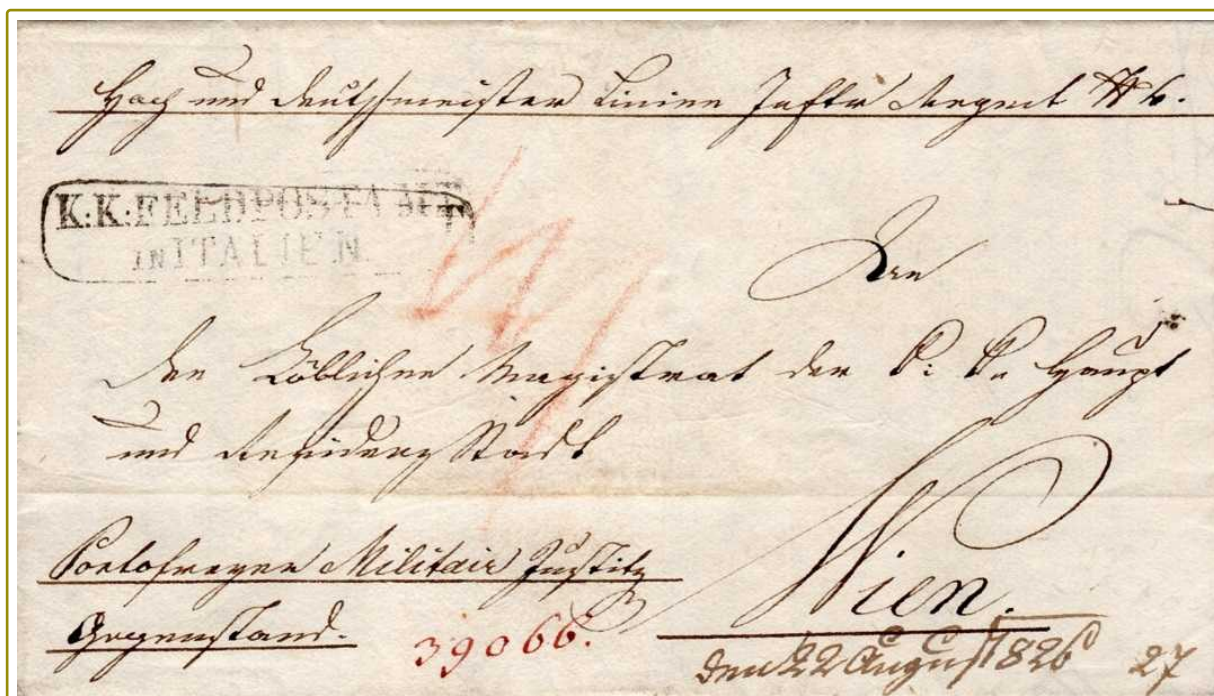 Hoch und Deutschmeister Linien Inftr Regmt № 4.
K:K:FELDPOSTAMT
IN ITALIEN
An
den Löblichen Magistrat der K: K: Haupt
und Residenz Stadt
Wien.
Portofreyer Militair Justitz
Gegenstand.
39066.
den 22 August 826
27